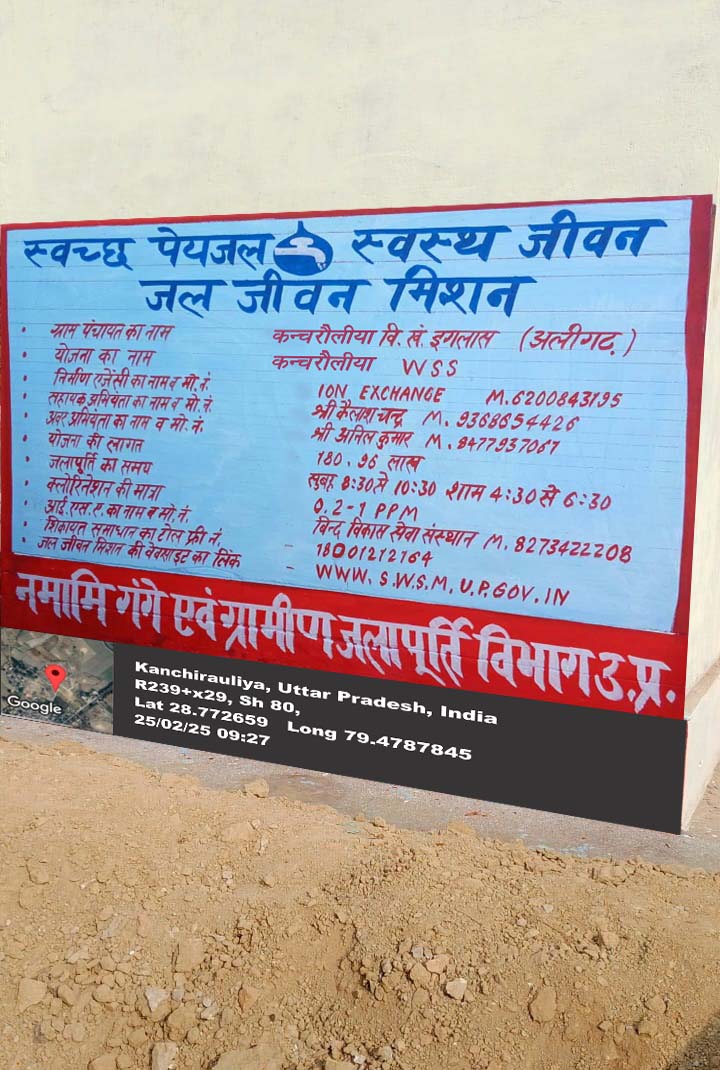 स्वच्छ पेयजल स्वस्थ जीवन
जल जीवन मिशन
• ग्राम पंचायत का नाम कन्चरौलीया वि. खं. इगलास (अलीगढ़)
• योजना का नाम कन्चरौलीया WSS
• निर्माण एजेंसी का नाम व मो. नं. ION EXCHANGE M. 6200843195
• सहायक अभियंता का नाम व मो. नं. श्री कैलाश चन्द्र M. 9368654426
• अवर अभियंता का नाम व मो. नं. श्री अनिल कुमार M. 8477937067
• योजना की लागत 180.96 लाख
• जलापूर्ति का समय सुबह 8:30 से 10:30 शाम 4:30 से 6:30
• क्लोरिनेशन की मात्रा 0.2-1 PPM
• आई. एस. ए. का नाम व मो. नं. विन्द विकास सेवा संस्थान M. 8273422208
• शिकायत समाधान का टोल फ्री नं. - 18001212164
• जल जीवन मिशन की वेबसाइट का लिंक - WWW. S.W.S.M. U.P.GOV.IN
नमामि गंगे एवं ग्रामीण जलापूर्ति विभाग उ.प्र.
Google
Kanchirauliya, Uttar Pradesh, India
R239+x29, Sh 80,
Lat 28.772659 Long 79.4787845
25/02/25 09:27